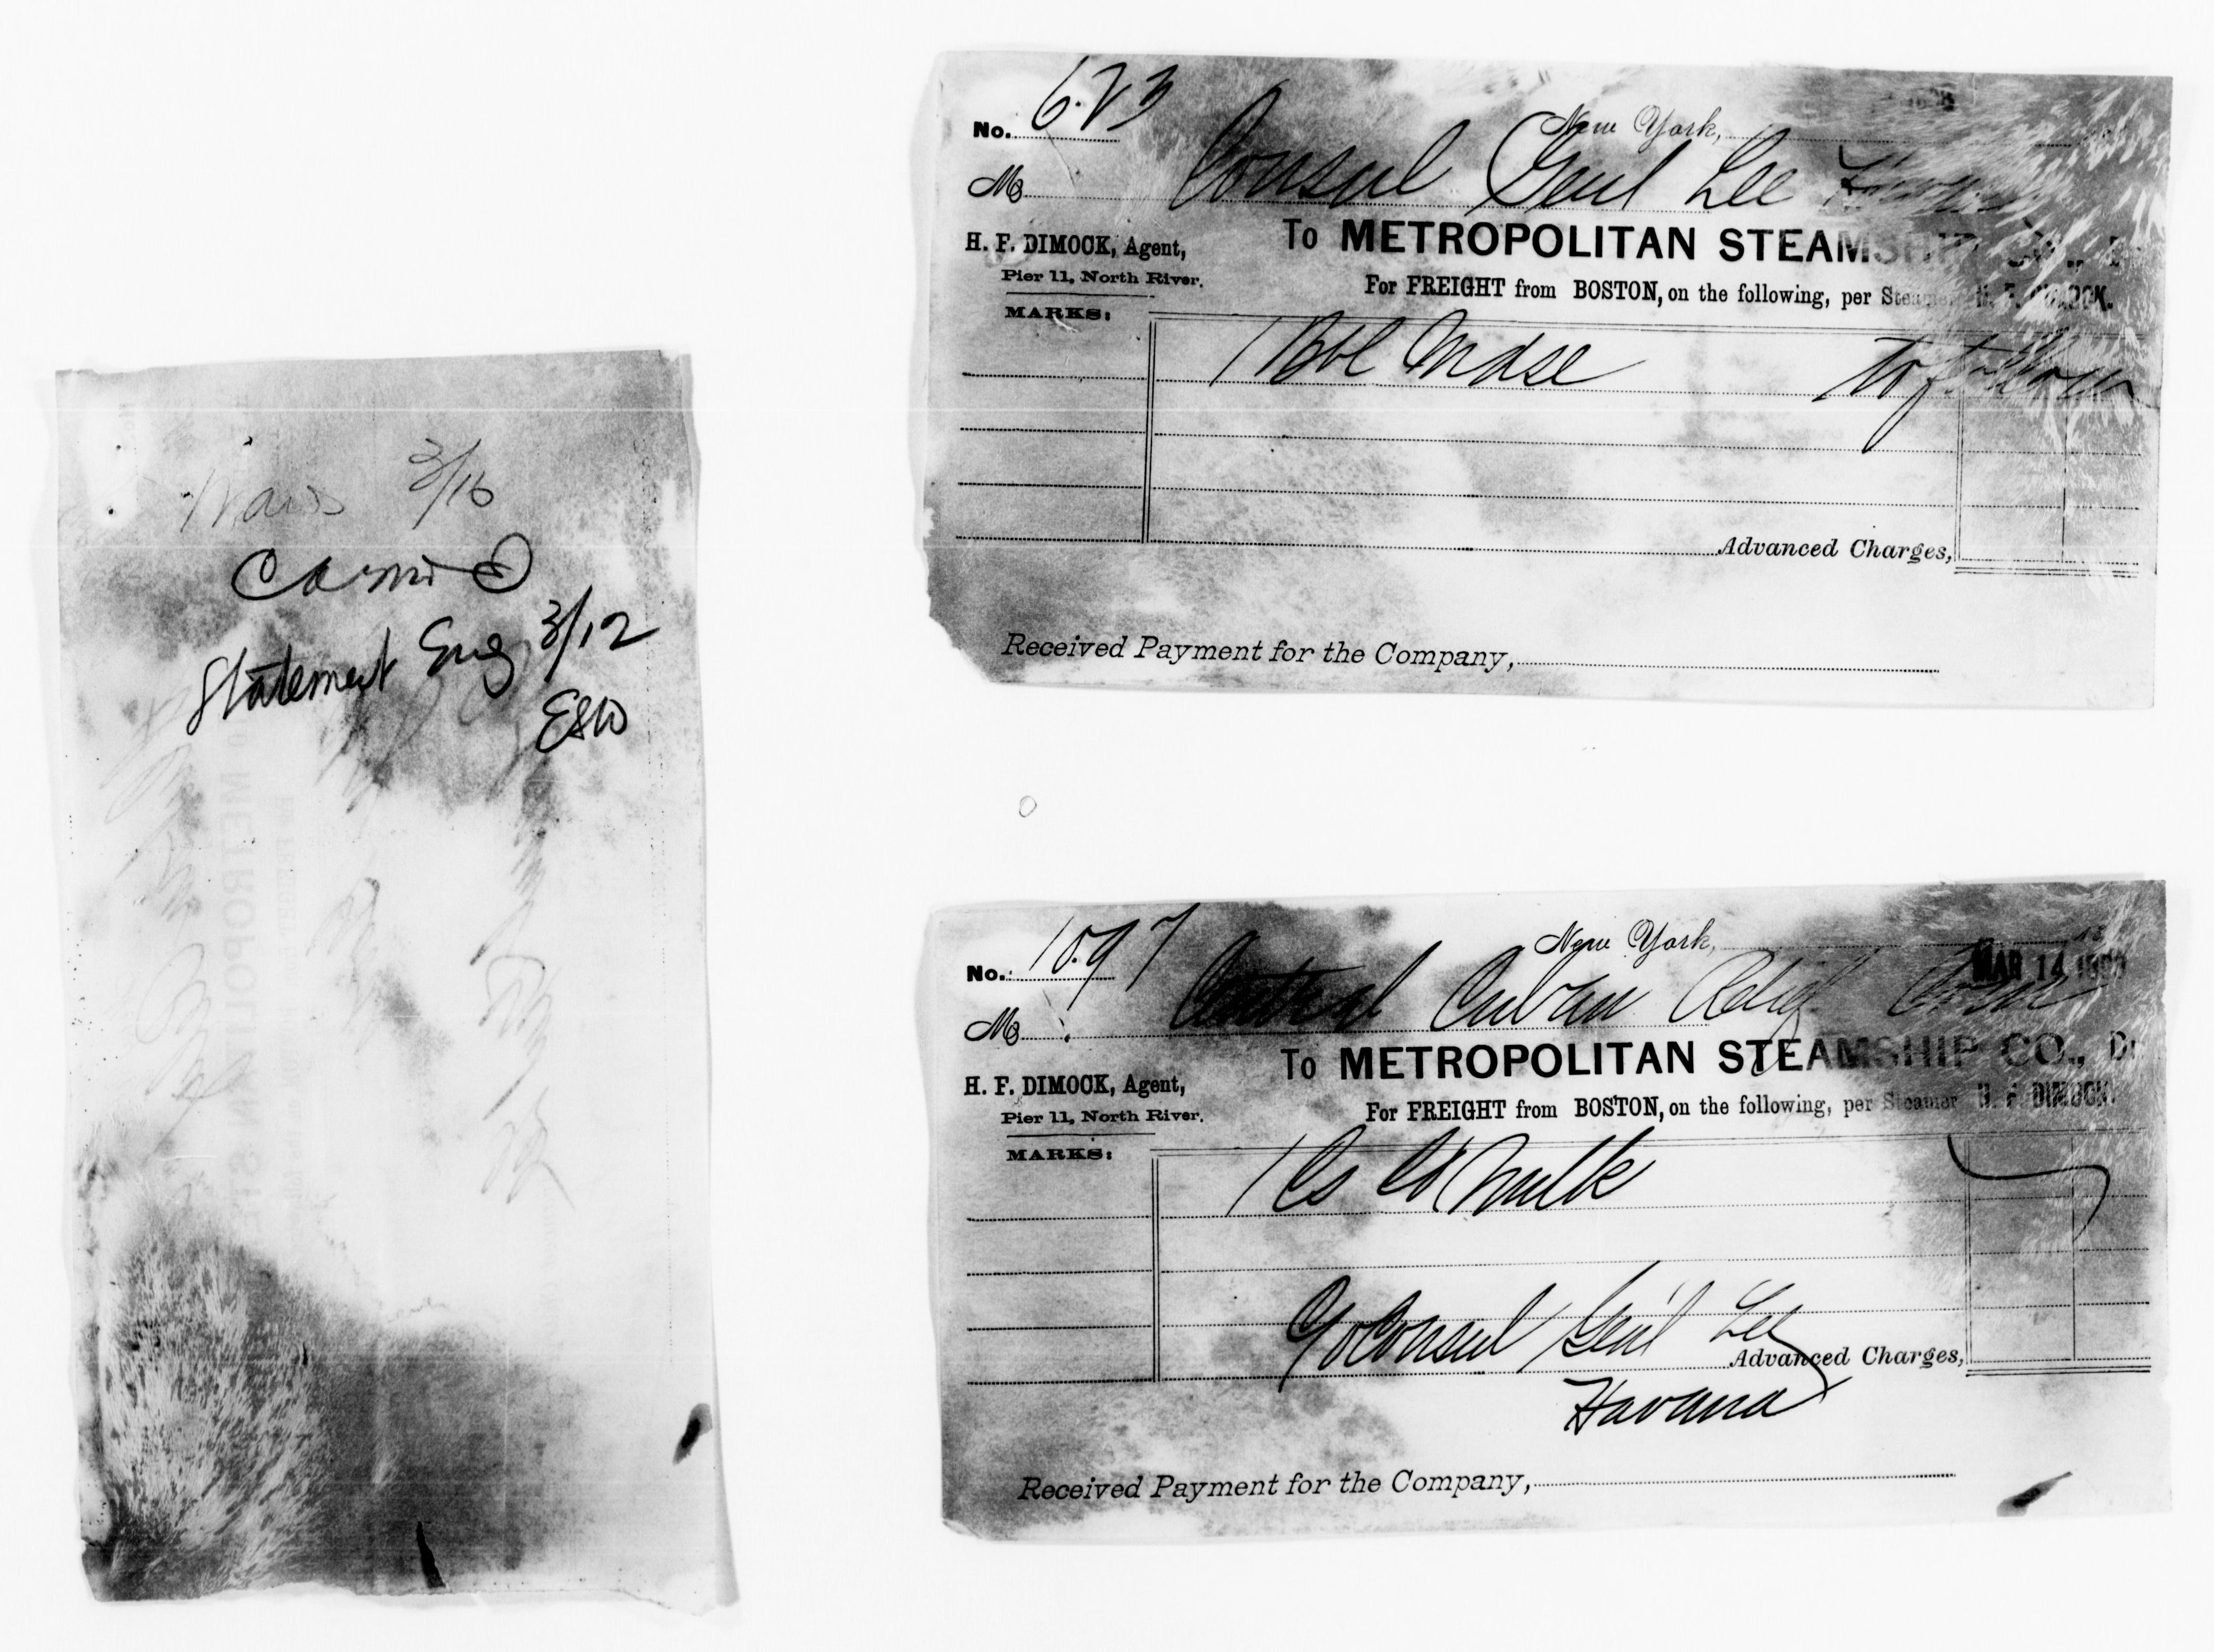 3/16
Statement Eng 3/12
No. 623
New York,
M Consul Genl Lee
H. F. DIMOCK, Agent,
Pier 11, North River.
To METROPOLITAN STEAMSHIP CO.,
For FREIGHT from BOSTON, on the following, per Steamer H. F. DIMOCK.
MARKS:
1 Bbl Mdse to follow
Advanced Charges,
Received Payment for the Company,
No. 1097
New York, MAR 14
M Central Cuban Relief Com
H. F. DIMOCK, Agent,
Pier 11, North River.
To METROPOLITAN STEAMSHIP CO., Dr
For FREIGHT from BOSTON, on the following, per Steamer H. F. DIMOCK.
MARKS:
1 Cs Cd Milk
c/o Consul Gen'l Lee
Advanced Charges,
Havana
Received Payment for the Company,